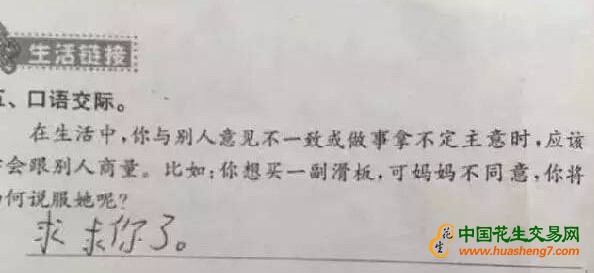 生活链接
五、口语交际。
在生活中,你与别人意见不一致或做事拿不定主意时,应该
会跟别人商量。比如:你想买一副滑板,可妈妈不同意,你将
何说服她呢?
求求你了。
花生
中国花生交易网
www.huasheng7.com